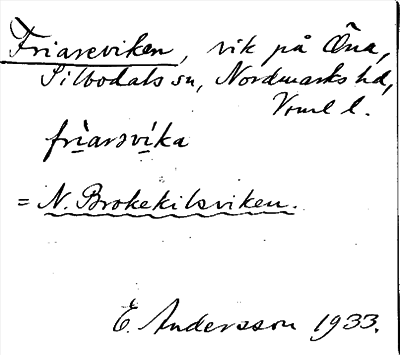 Friareviken, vik på Öna,
Silbodals sn, Nordmarks hd,
Vrml l.
frìarsvíka
= N. Brokekilsviken.
E. Andersson 1933.